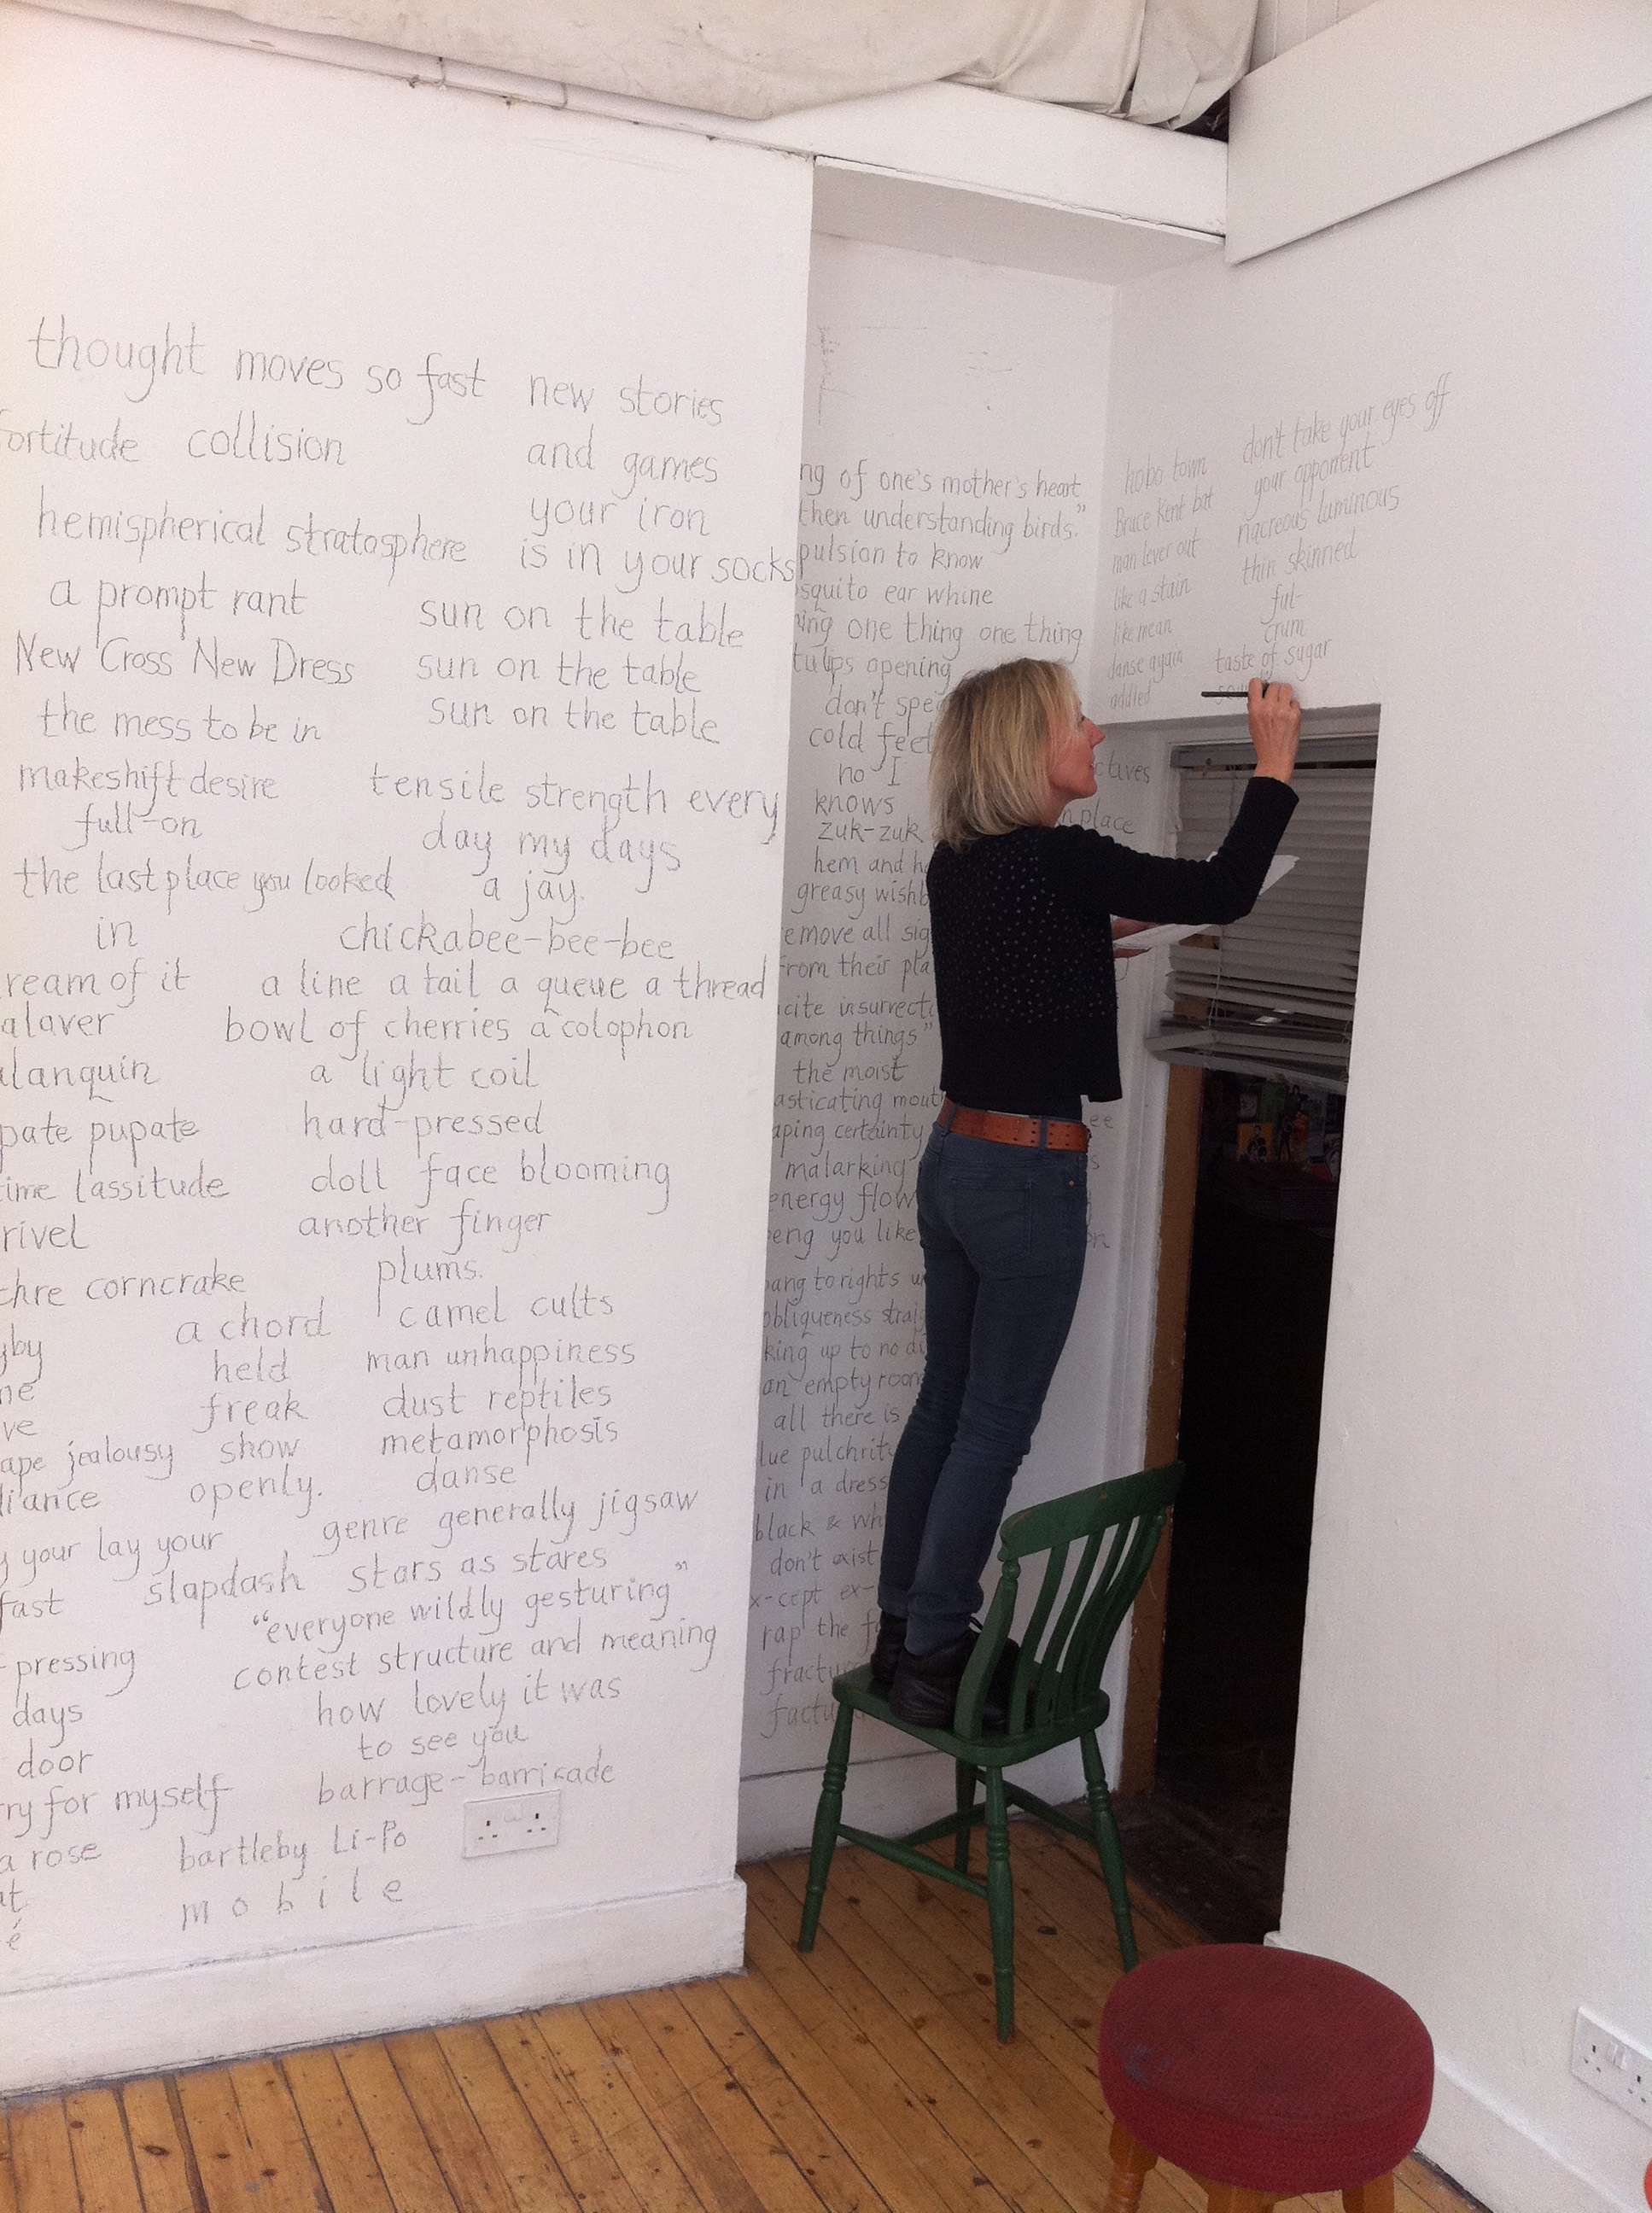 thought moves so fast
fortitude collision
hemispherical stratosphere
a prompt rant
New Cross New Dress
the mess to be in
makeshift desire
full-on
the last place you looked
in
new stories
and games
your iron
is in your socks
sun on the table
sun on the table
sun on the table
tensile strength every
day my days
a jay.
chickabee-bee-bee
ream of it a line a tail a queue a thread
alaver bowl of cherries a colophon
lanquin a light coil
pate pupate hard-pressed
ime lassitude doll face blooming
rivel another finger
plums.
chre corncrake camel cults
yby a chord man unhappiness
ne held dust reptiles
ve freak metamorphosis
ape jealousy show danse
liance openly.
y your lay your genre generally jigsaw
fast slapdash stars as stares
"everyone wildly gesturing"
pressing contest structure and meaning
days how lovely it was
door to see you
ry for myself barrage-barricade
a rose bartleby Li-Po
at mobile
é
ng of one's mother's heart
then understanding birds."
pulsion to know
squito ear whine
ing one thing one thing
tulips opening
don't spe
cold feet
no I ctives
knows
n place
zuk-zuk
hem and h
greasy wishb
emove all sig
from their pla
cite insurrecti
among things"
the moist
asticating mout
aping certainty
malarking
energy flow
eng you like
bang to rights
obliqueness straig
king up to no
an empty room
all there is
lue pulchrit
in a dress
black & wh
don't exist
x-cept ex-
rap the f
fractur
factu
hobo town
Bruce Kent bat
man lever out
like a stain
like mean
danse again
addled
don't take your eyes off
your opponent
nacreous luminous
thin skinned
ful-
crum
taste of sugar